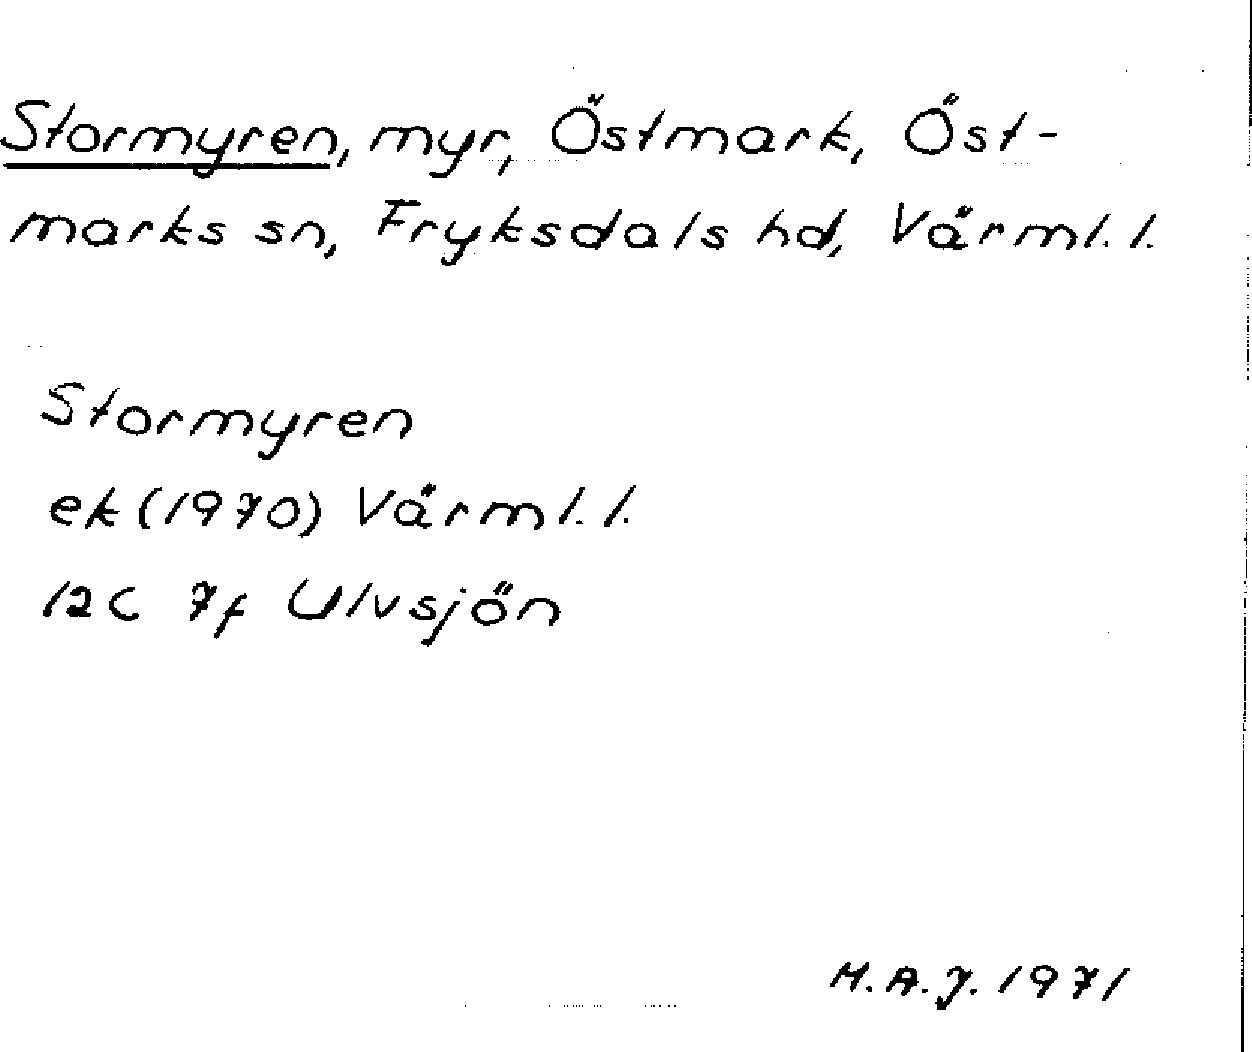 Stormyren, myr, Östmark, Öst-
marks sn, Fryksdals hd, Värml. l.
Stormyren
ek (1970) Värml. l.
12C 7f Ulvsjön
M.A.J. 1971